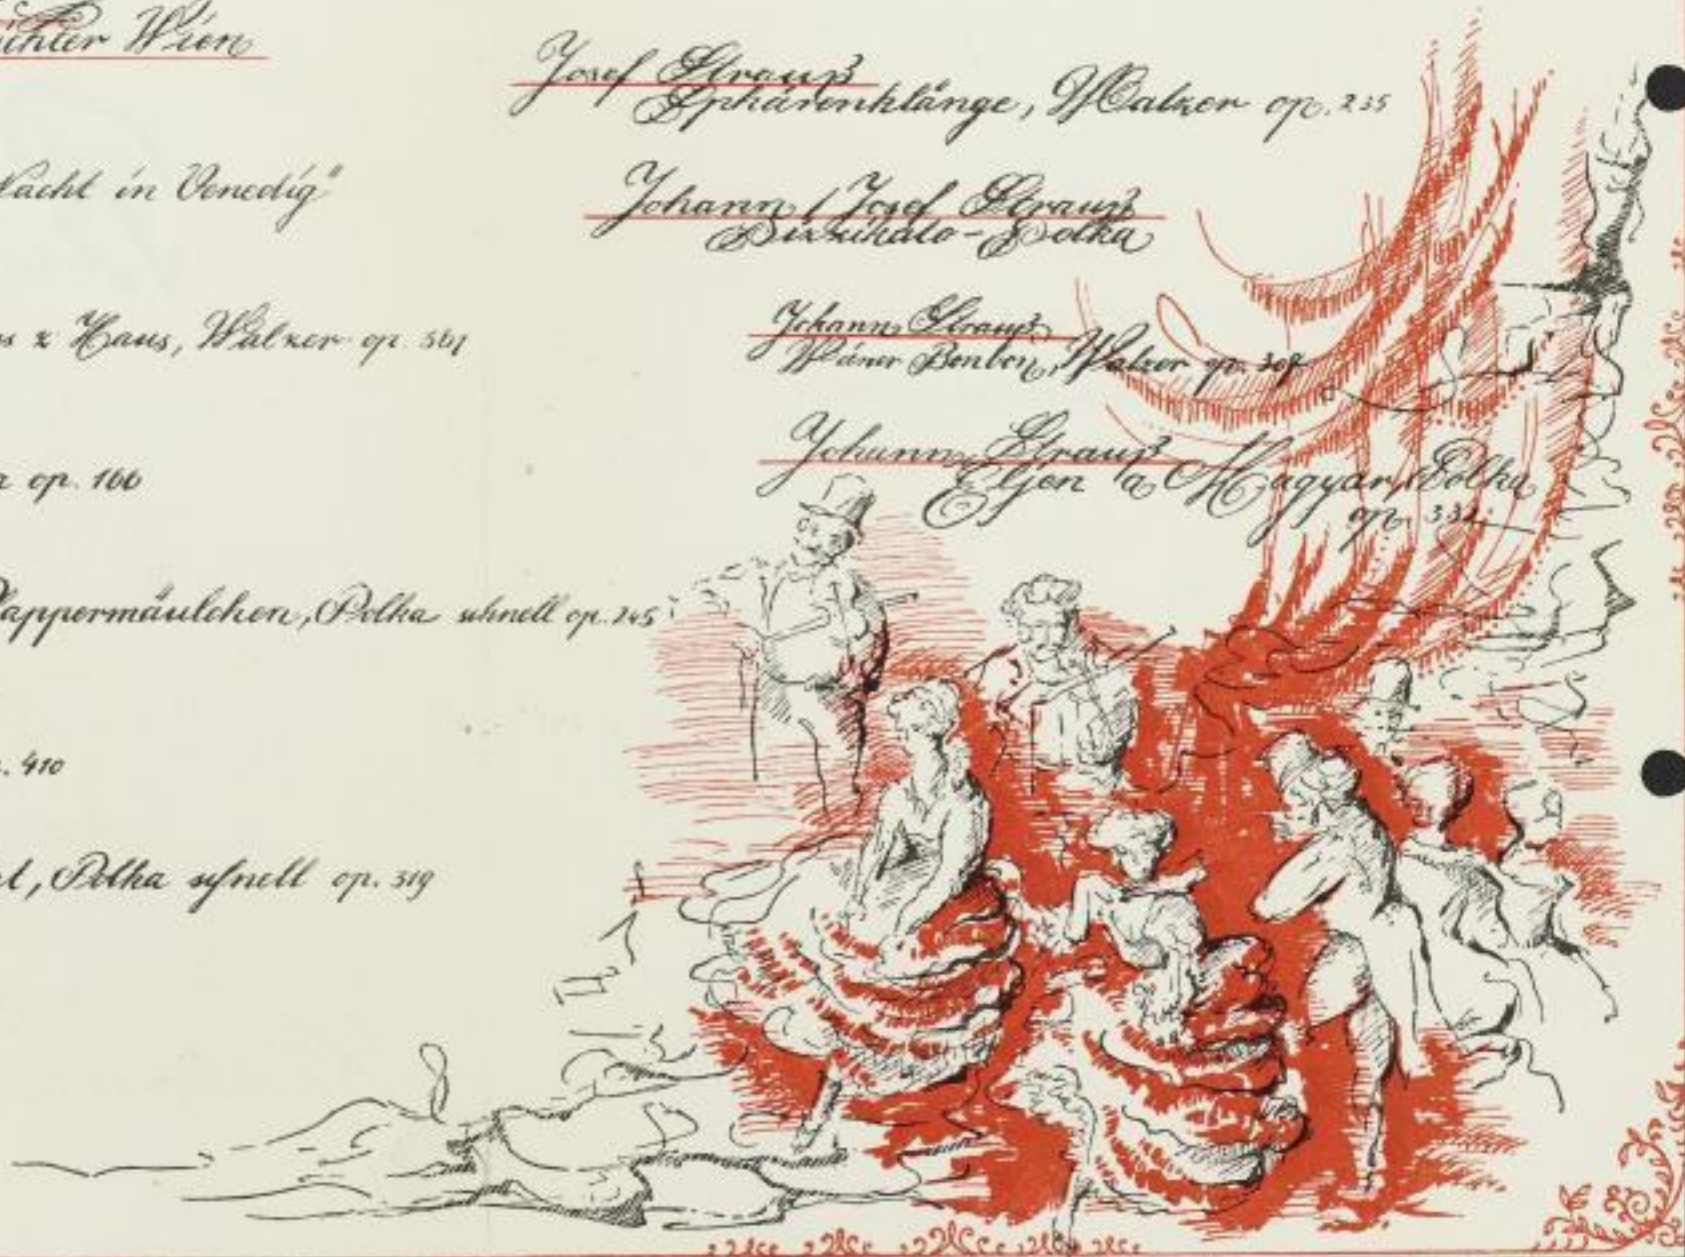 ichter Wien
Nacht in Venedig"
s z Haus, Walzer op. 361
op. 166
lappermäulchen, Polka schnell op. 245
. 410
t, Polka schnell op. 319
Josef Strauß
Sphärenklänge, Walzer op. 235
Johann / Josef Strauß
Pizzikato-Polka
Johann Strauß
Wiener Bonbon, Walzer op. 307
Johann Strauß
Eljen a Magyar, Polka
op. 332